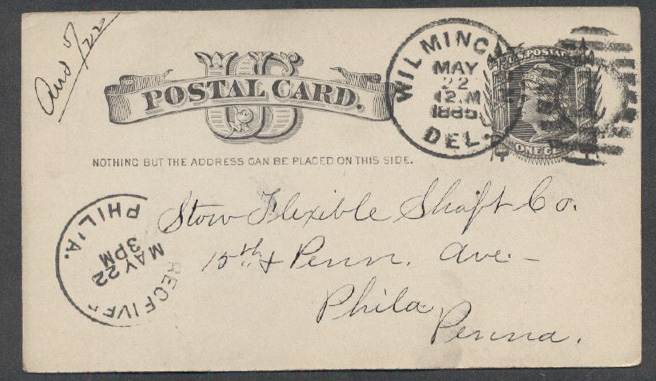 Ans 5/22
U.S. POSTAL
US
POSTAL CARD.
ONE CENT
WILMINGTON
MAY
22
12 M
1885
DEL.
NOTHING BUT THE ADDRESS CAN BE PLACED ON THIS SIDE.
Stow Flexible Shaft Co.
15th & Penn. Ave.
Phila
Penna.
PHIL'A.
MAY 22
3PM
RECEIVED